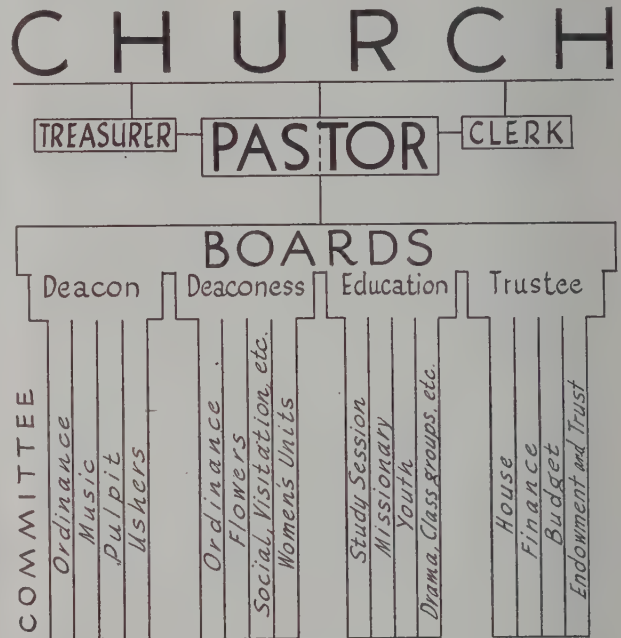 CHURCH
TREASURER
PASTOR
CLERK
BOARDS
Deacon
Deaconess
Education
Trustee
COMMITTEE
Ordinance
Music
Pulpit
Ushers
Ordinance
Flowers
Social, Visitation, etc.
Women's Units
Study Session
Missionary
Youth
Drama, Class groups, etc.
House
Finance
Budget
Endowment and Trust